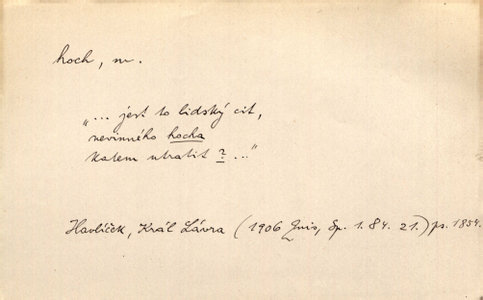 hoch, m.
„... jest to lidský cit,
nevinného hocha
katem utratit ? ..."
Havlíček, Král Lávra (1906 Quis, Sp. 1. 84. 21.) ps. 1854.